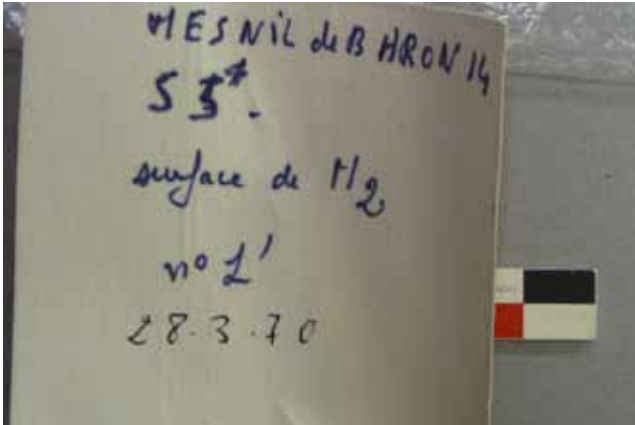 MESNIL de BARON 14
S3*.
surface de M2
n° 1'
28.3.70